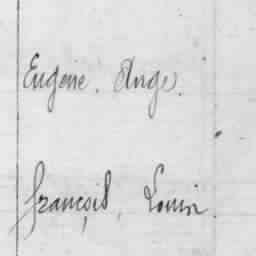 Eugène. Ange.
François, Louis.